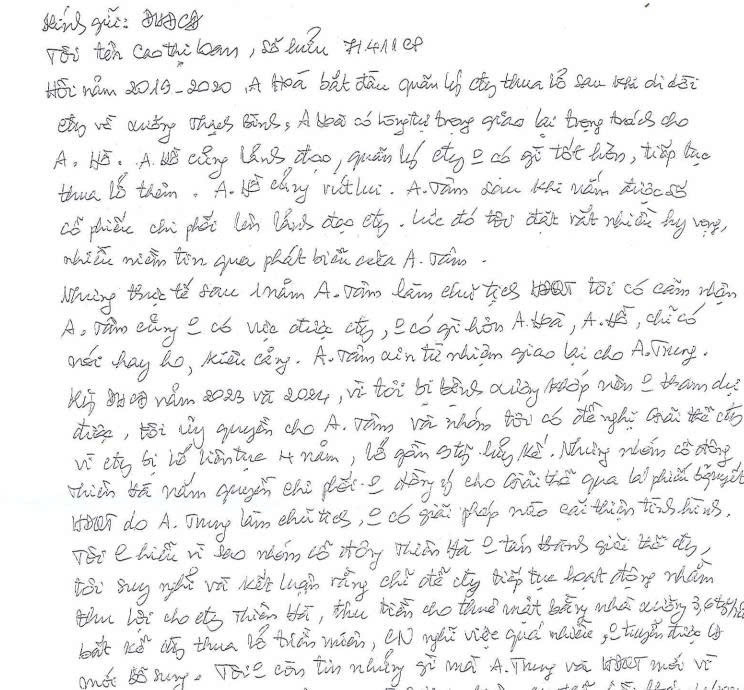 Kính gửi: ĐHĐCĐ
Tôi tên Cao thị Loan, sở hữu 7411CP
Hồi năm 2019-2020, A Hoà bắt đầu quản lý cty thua lỗ sau khi di dời
cty về xưởng Thạch Bình, A Hoà có lòng tự trọng giao lại trọng trách cho
A. Hồ. A. Hồ cũng lãnh đạo, quản lý cty 0 có gì tốt hơn, tiếp tục
thua lỗ thêm. A. Hồ cũng rút lui. A. Tâm sau khi nắm được số
cổ phiếu chi phối lên lãnh đạo cty. Lúc đó tôi đặt rất nhiều hy vọng,
nhiều niềm tin qua phát biểu của A. Tâm.
Nhưng thực tế sau 1 năm A. Tâm làm chủ tịch HĐQT tôi có cảm nhận
A. Tâm cũng 0 có vực được cty, 0 có gì hơn A. Hoà, A. Hồ, chỉ có
nói hay ho, kiểu cảng. A. Tâm xin từ nhiệm giao lại cho A. Trung.
Kỳ ĐHCĐ năm 2023 và 2024, vì tôi bị bệnh xương khớp nên 0 tham dự
được, tôi ủy quyền cho A. Tâm và nhóm tôi có đề nghị Giải thể cty
vì cty bị lỗ liên tục 4 năm, lỗ gần 9 tỷ lũy kế. Nhưng nhóm cổ đông
Thiên Hà nắm quyền chi phối 0 đồng ý cho Giải thể qua lá phiếu biểu quyết
HĐQT do A. Trung làm chủ tịch, 0 có giải pháp nào cải thiện tình hình.
Tôi 0 hiểu vì sao nhóm cổ đông Thiên Hà 0 tán thành giải thể cty,
tôi suy nghĩ và kết luận rằng chỉ để cty tiếp tục hoạt động nhằm
thu lợi cho cty Thiên Hà, thu tiền cho thuê mặt bằng nhà xưởng 3,6 tỷ/
bất kể cty thua lỗ triền miên, CN nghỉ việc quá nhiều, 0 tuyển được
mới bổ sung. Tôi 0 còn tin những gì mà A. Trung và HĐQT mới vì